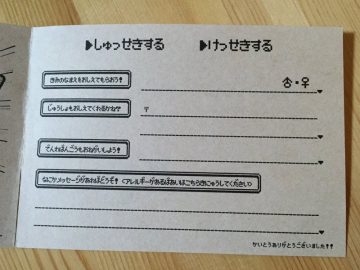 ▶しゅっせきする ▶けっせきする
きみのなまえをおしえてもらおう!
♂・♀
じゅうしょもおしえてくれるかね?
〒
でんわばんごうもおねがいしよう!
なにかメッセージがあればどうぞ!(アレルギーがあるばあいはこちらきにゅうしてください)
かいとうありがとうございました!!